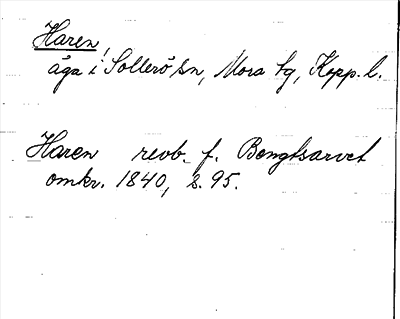 Haren,
äga i Sollerö sn, Mora tg, Kopp. l.
Haren revb. f. Bengtsarvet
omkr. 1840, s. 95.